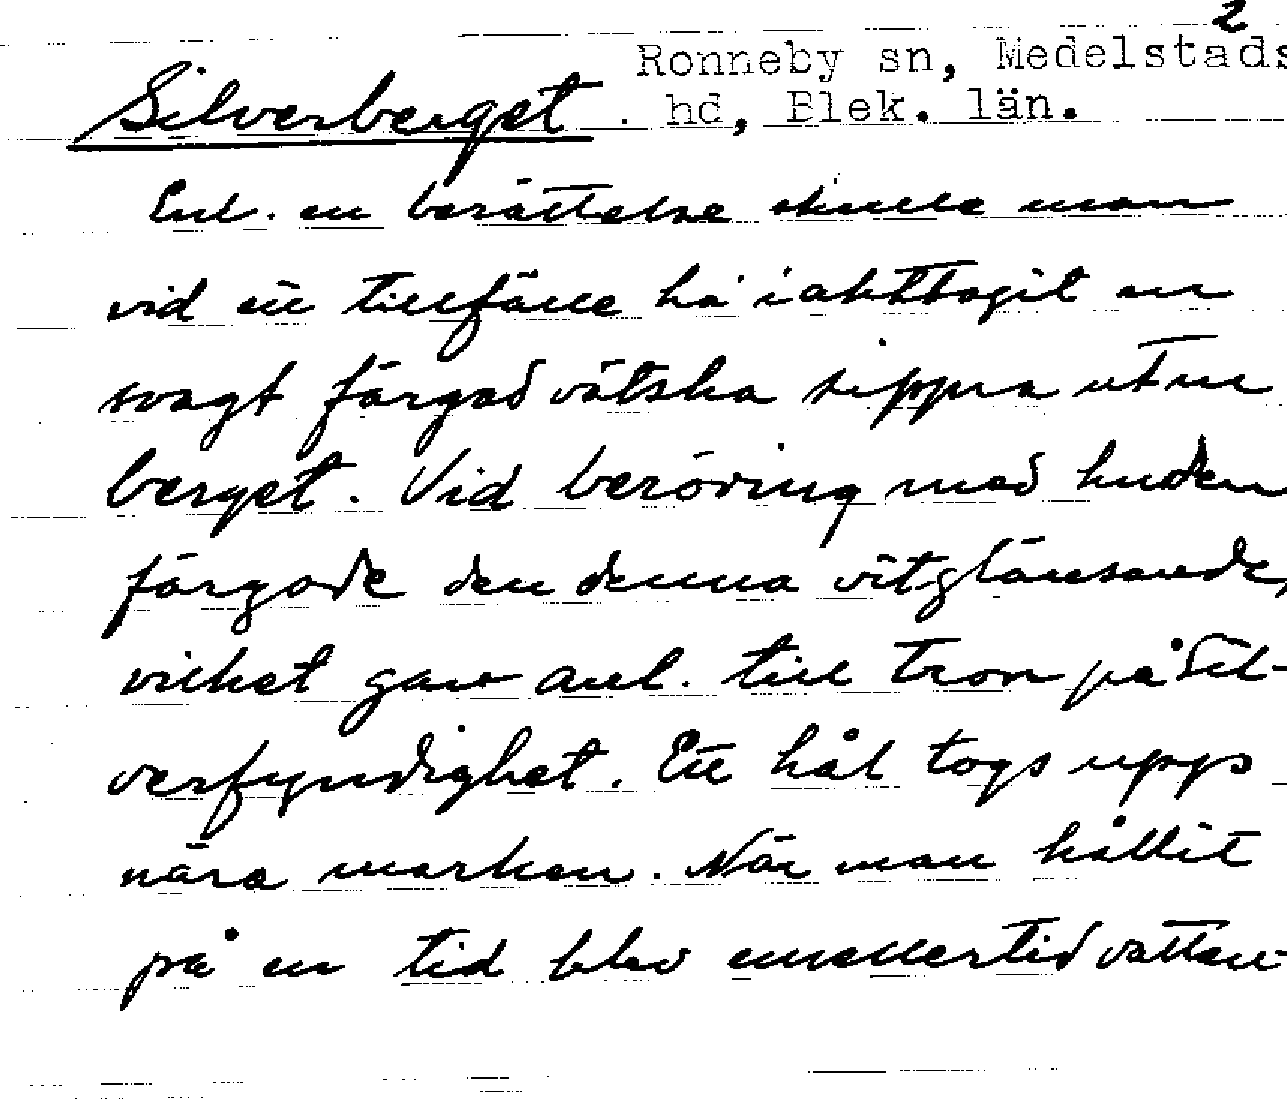 2
Ronneby sn, Medelstads
Silverberget hd, Blek. län.
Enl. en berättelse skulle man
vid ett tillfälle ha iakttagit en
svagt färgad vätska sippra ut ur
berget. Vid beröring med huden
färgade den denna vitglänsande,
vilket gav anl. till tron på sil-
verfyndighet. Ett hål togs upp
nära marken. När man hållit
på en tid blev emellertid vatten-